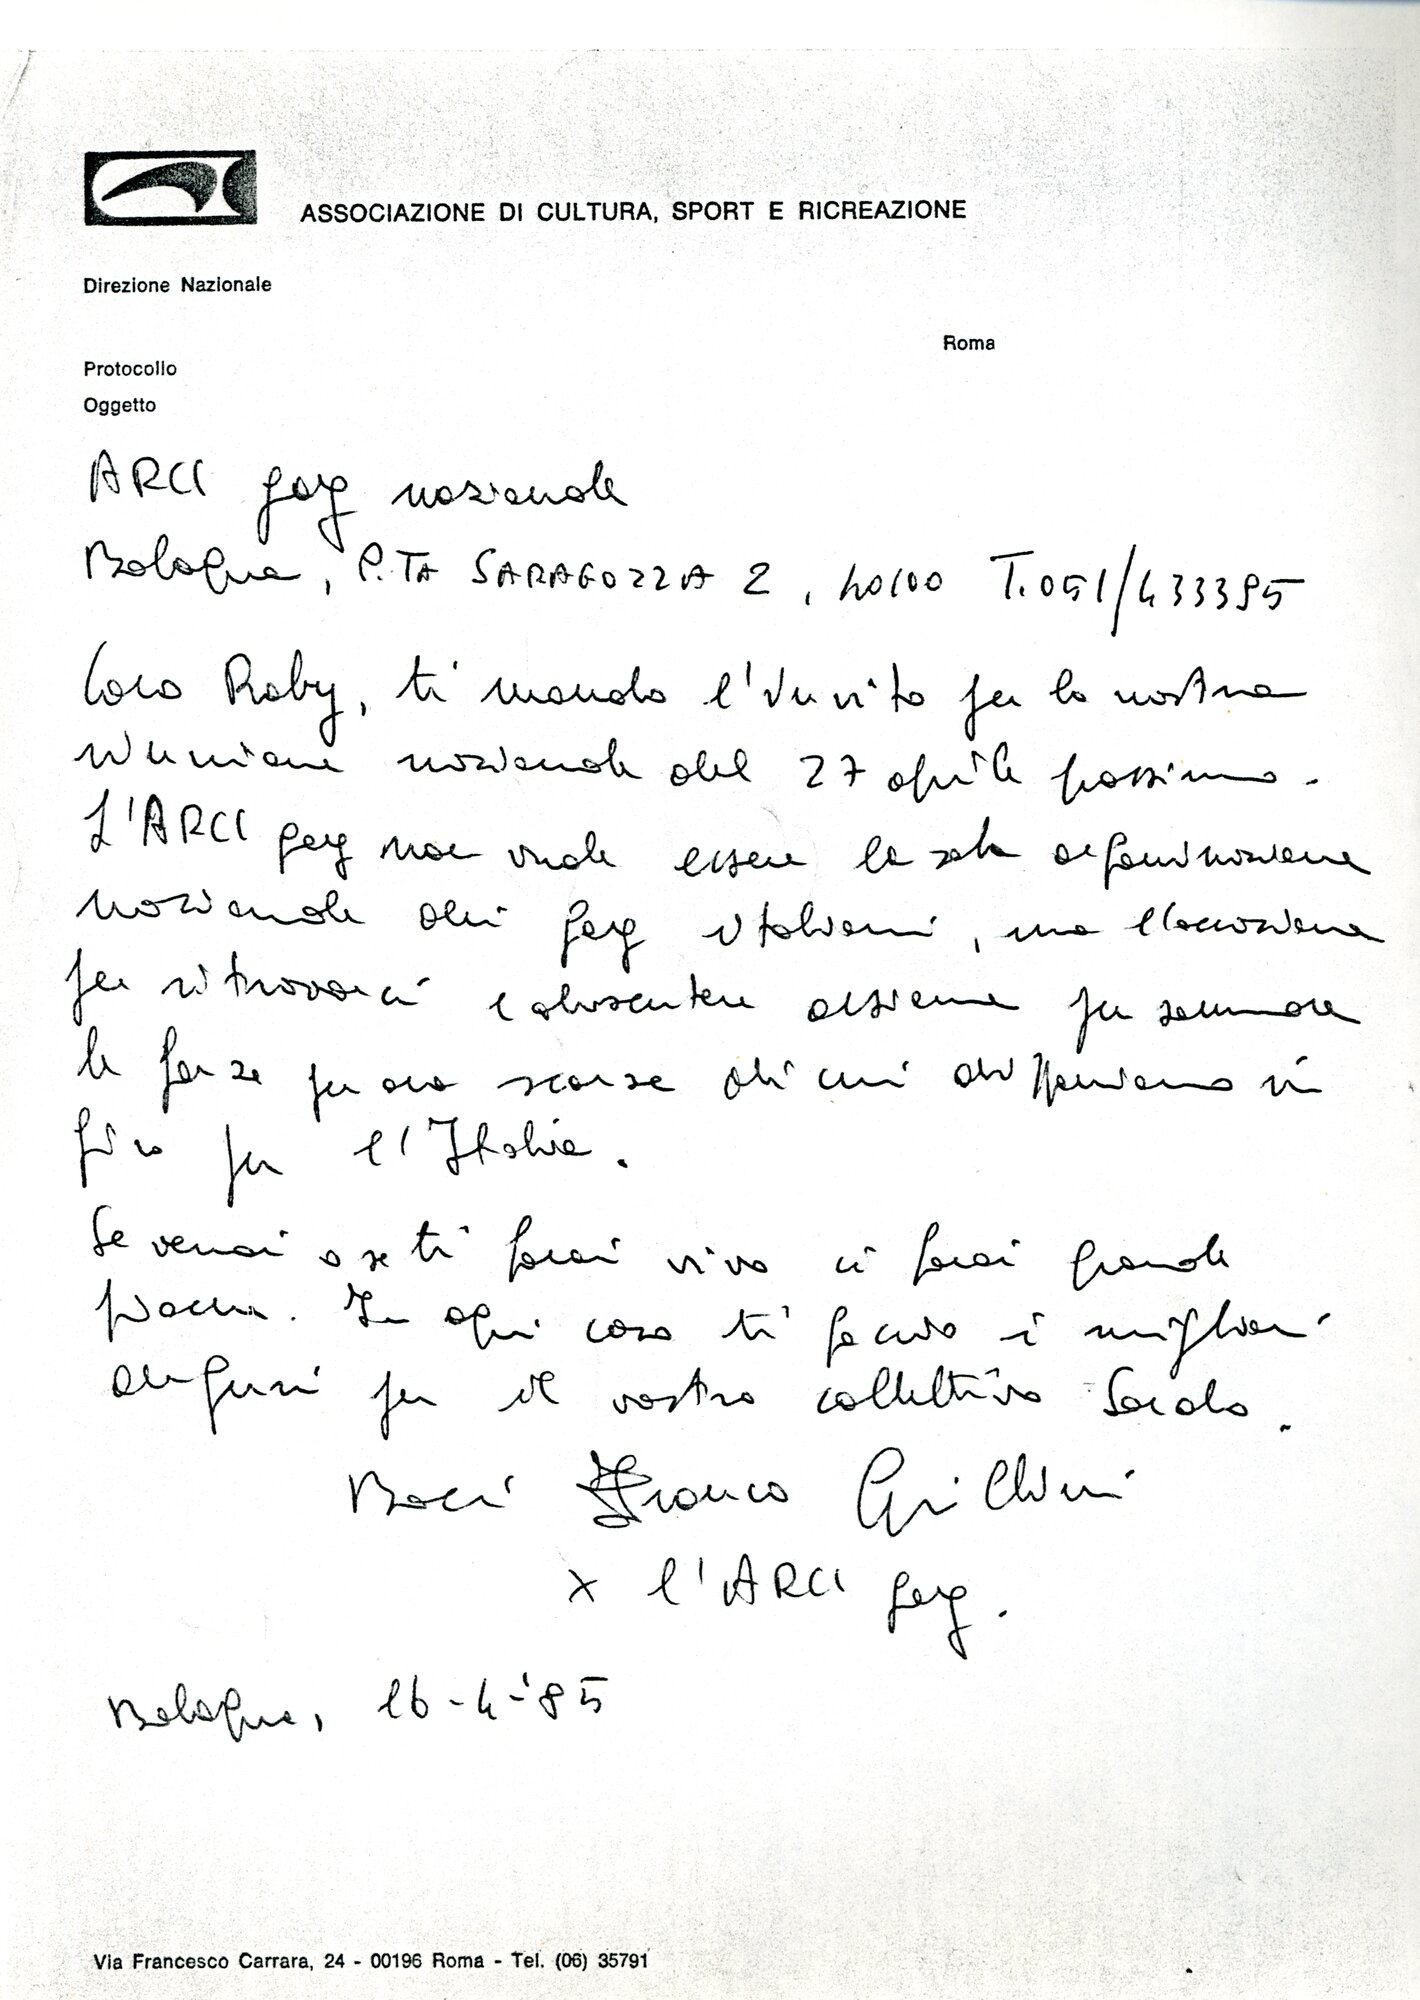 ASSOCIAZIONE DI CULTURA, SPORT E RICREAZIONE
Direzione Nazionale
Roma
Protocollo
Oggetto
ARCI gay nazionale
Bologna, P.TA SARAGOZZA 2, 40100 T. 051/433395
Caro Roby, ti mando l'invito per la nostra
riunione nazionale del 27 aprile prossimo.
L'ARCI gay non vuole essere la sola organizzazione
nazionale dei gay italiani, ma l'occasione
per ritrovarci e discutere assieme per sommare
le forze per ora scarse di cui disponiamo in
giro per l'Italia.
Se verrai o se ti farai vivo ci farai grande
piacere. In ogni caso ti faccio i migliori
auguri per il vostro collettivo
Baci Franco Grillini
x l'ARCI gay.
Bologna, 16-4-'85
Via Francesco Carrara, 24 - 00196 Roma - Tel. (06) 35791